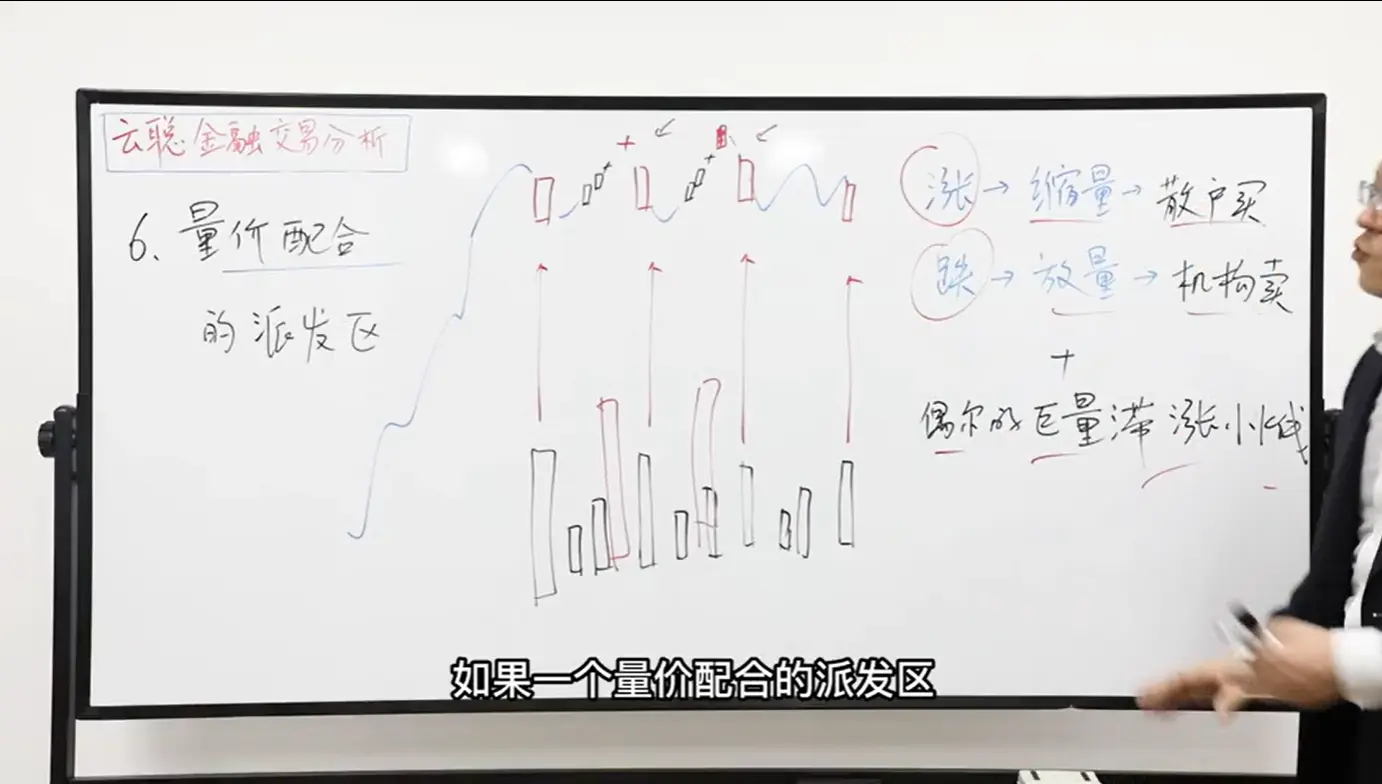 云聪金融交易分析
6、量价配合
的派发区
涨→缩量→散户买
跌→放量→机构卖
+
偶尔的巨量滞涨小K线
如果一个量价配合的派发区